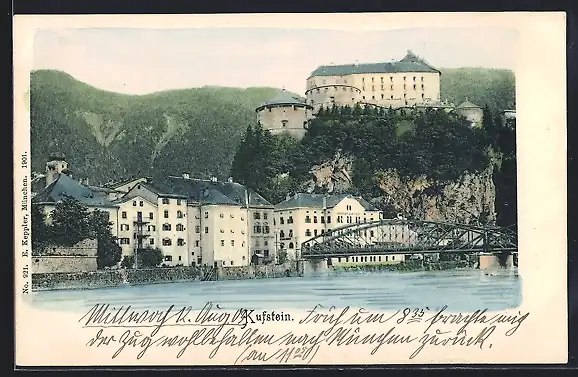 No. 921. E. Keppler, München. 1901.
Kufstein.
Mittwoch 12. Aug. Früh um 8 35 brachte mich
der Zug wohlbehalten nach München zurück.
(an 11 25)